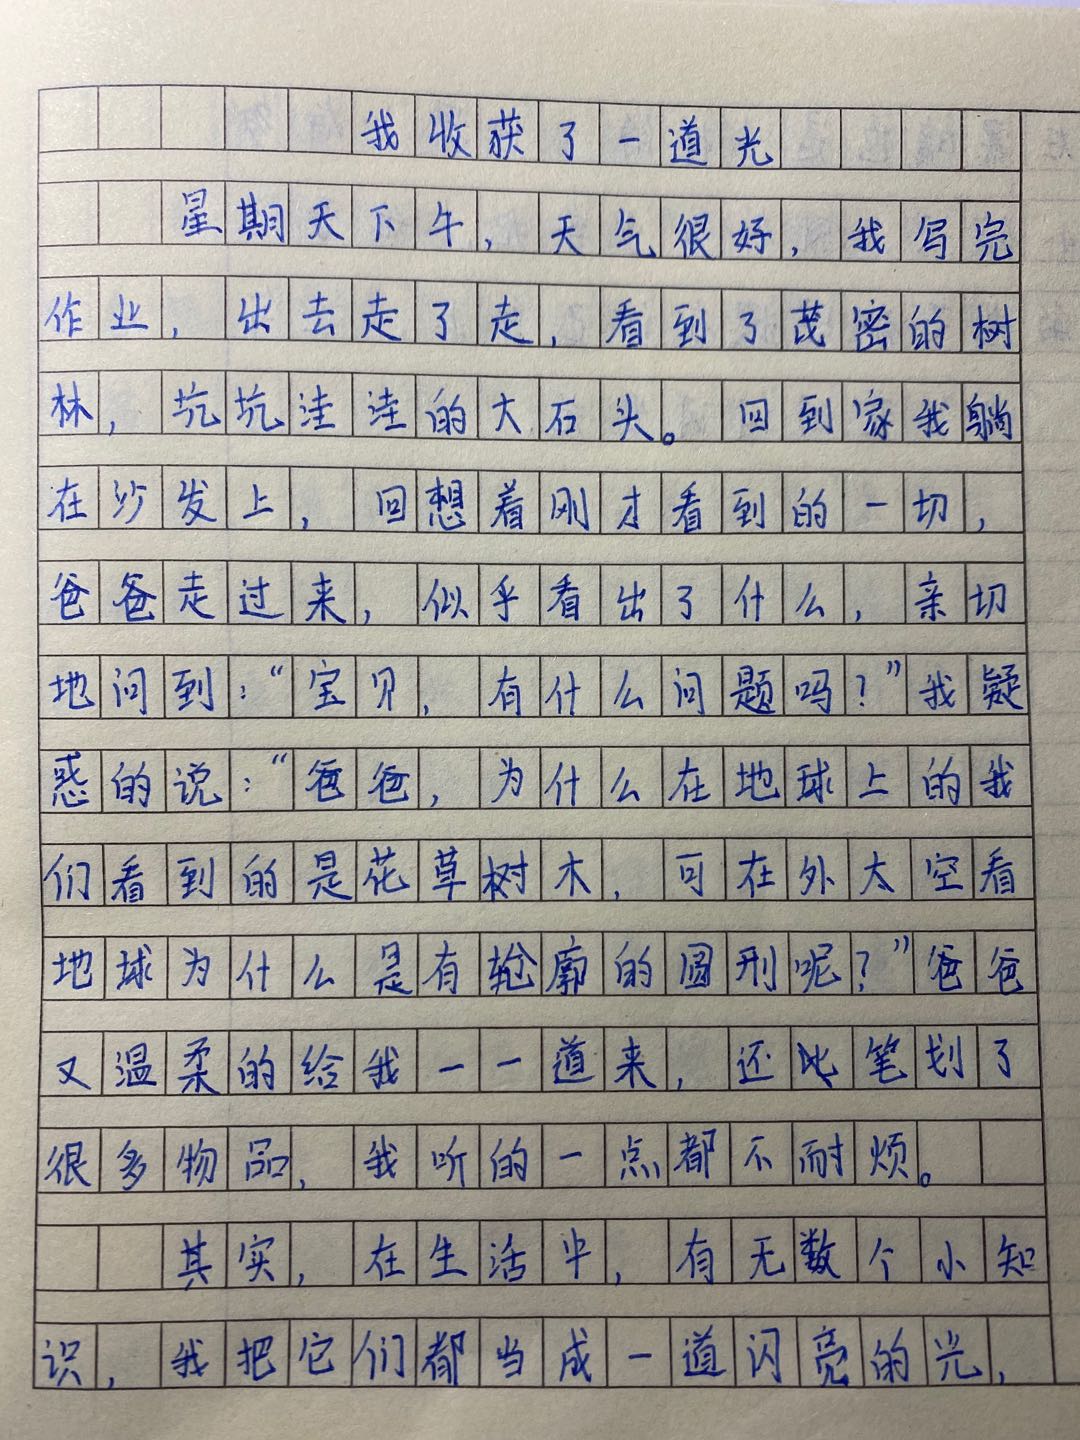 我收获了一道光
星期天下午，天气很好，我写完
作业，出去走了走，看到了茂密的树
林，坑坑洼洼的大石头。回到家我躺
在沙发上，回想着刚才看到的一切，
爸爸走过来，似乎看出了什么，亲切
地问到：“宝贝，有什么问题吗？”我疑
惑的说：“爸爸，为什么在地球上的我
们看到的是花草树木，可在外太空看
地球为什么是有轮廓的圆形呢？”爸爸
又温柔的给我一一道来，还比笔划了
很多物品，我听的一点都不耐烦。
其实，在生活中，有无数个小知
识，我把它们都当成一道闪亮的光，